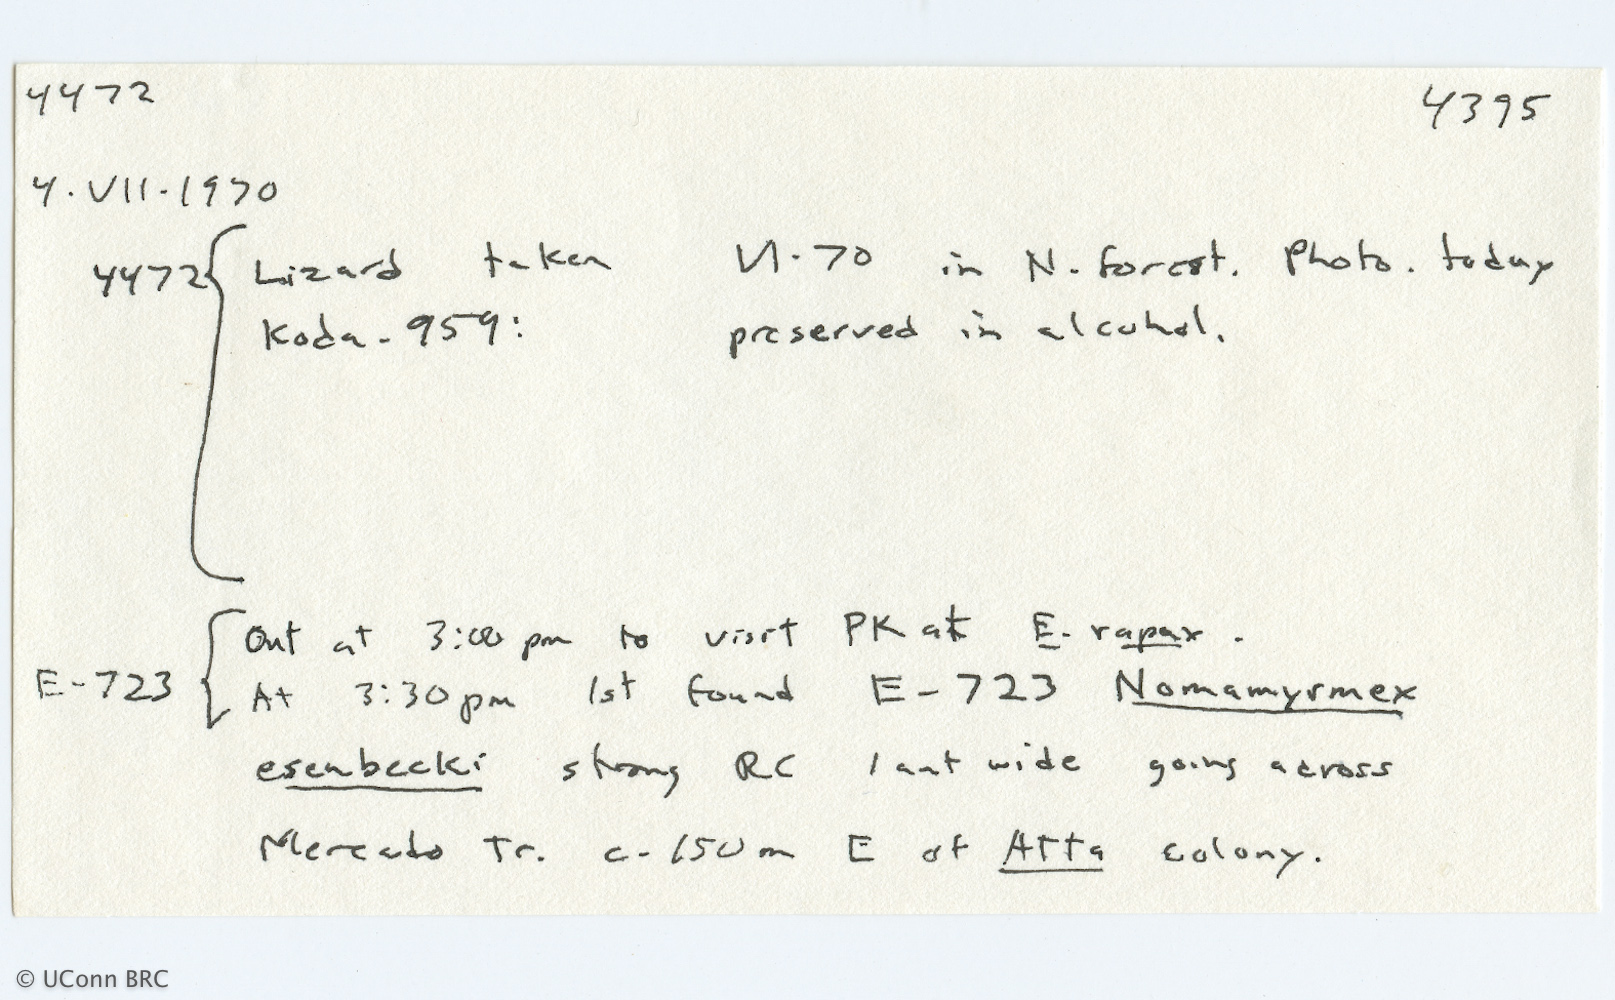 4472 4395
4.VII.1970
4472 { Lizard taken VI.70 in N. forest. Photo. today
Koda. 959: preserved in alcohol.
Out at 3:00 pm to visit PK at E. rapax.
E-723 { At 3:30 pm 1st found E-723 Nomamyrmex
esenbecki strong RC 1 ant wide going across
Mercado Tr. c. 150 m E of Atta colony.
© UConn BRC